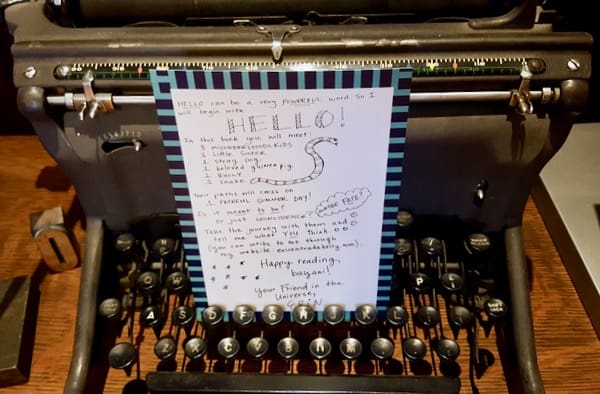 HELLO can be a very POWERFUL word. So I
will begin with
HELLO!
In this book you will meet:
3 MIDDLESCHOOL KIDS
1 LITTLE SISTER
1 stray DOG
1 beloved guinea pig
1 BULLY
1 snake
Their paths will cross on
1 FATEFUL SUMMER DAY!
Is it meant to be?
or just COINCIDENCE?
MAYBE FATE?
Take the journey with them and
tell me what YOU think
(you can write to me through
my website: erinentradakelly.com).
Happy reading,
bayani!
Your Friend in the
Universe,
ERIN
A S D F G H J K L
P
C V B N M